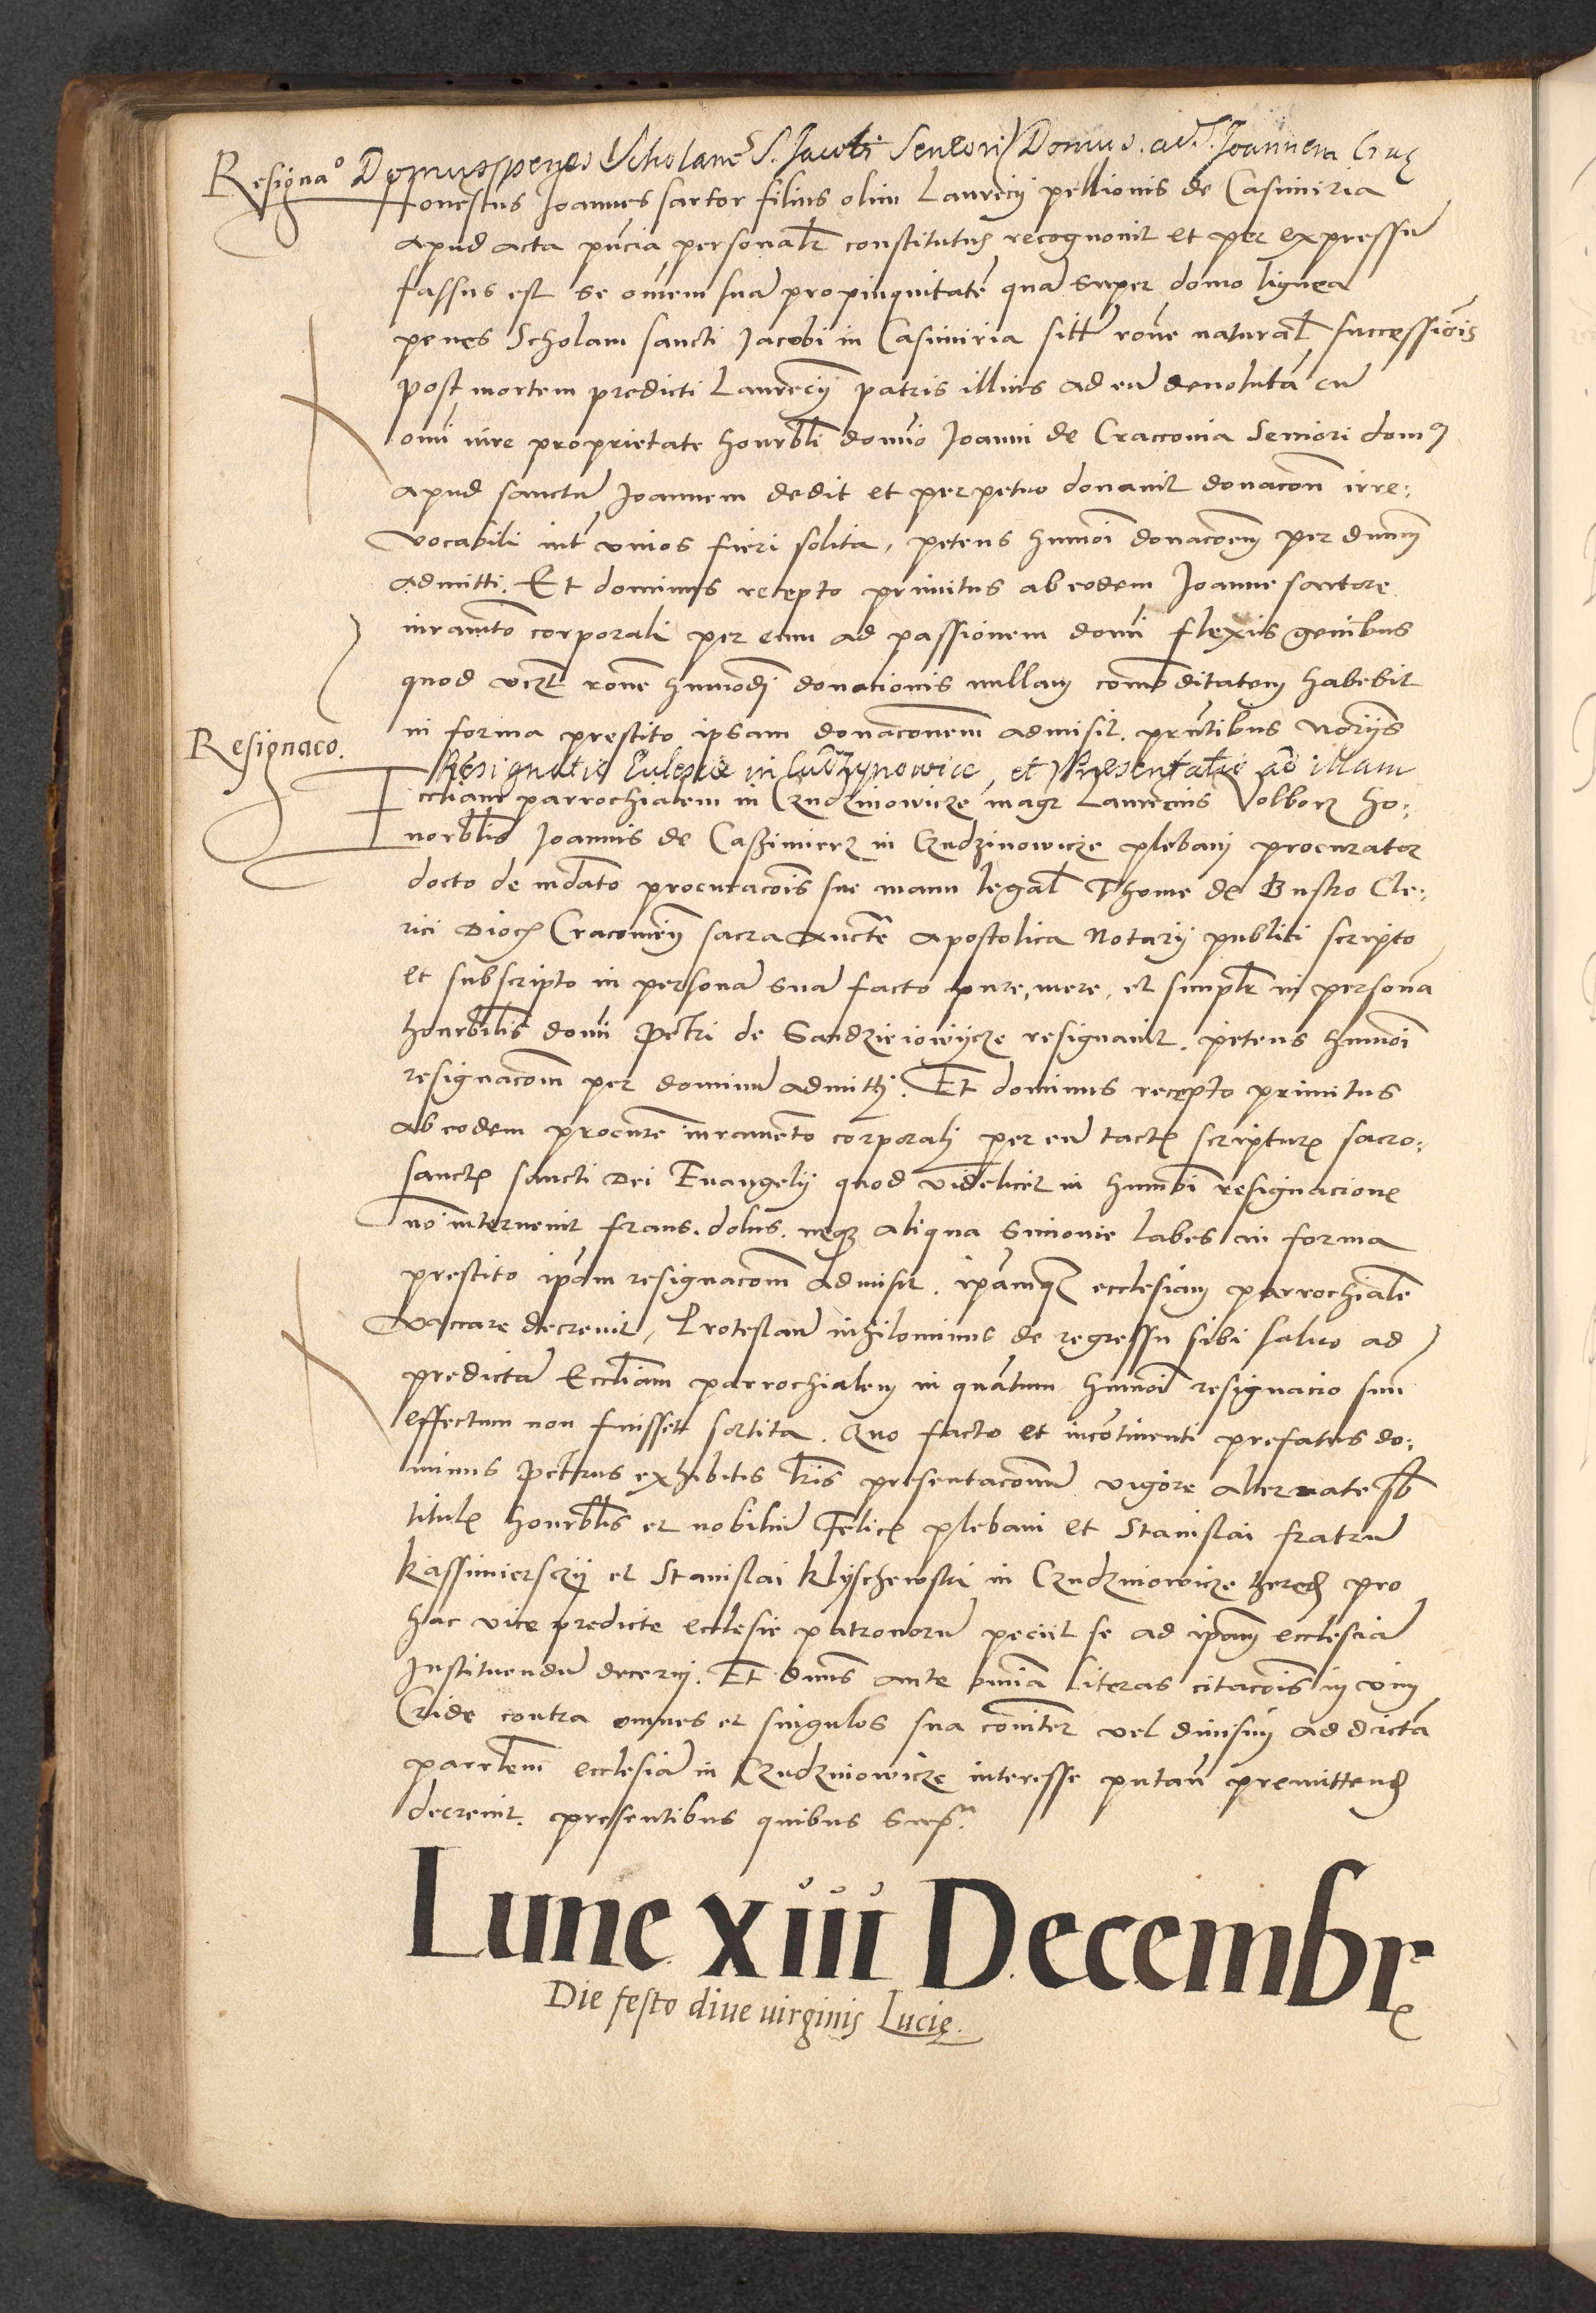 Resignaº Domus penes Scholam S. Jacobi Seniori Domus ad S. Joannem Crac
Honestus Joannes sartor filius olim Laurecij pellionis de Casimiria
apud acta pncia personalr constitutus recognovit et per expressu
fassus est se omem sua propinquitate qua super domo lignea
penes Scholam sancti Jacobi in Casimiria sitt rone natural successiois
post mortem predicti Laurecij patris illius ad eu devoluta cu
omi iure proprietate honrbli domio Joanni de Cracovia Seniori domus
apud sanctu Joannem dedit et perpetuo donavit donacon irre:
vocabili int vivos fieri solita, petens hmoi donacoem per dnum
admitti. Et dominus recepto primitus ab eodem Joanne sartore
iuramto corporali per eum ad passionem domi flexis genibus
quod rone hmodi donationis nullam comoditatem habebit
in forma prestito ipsam donaconem admisit. pntibus
Resignaco.
Resignatio Eclesiae in Cudzynowice, et Praesentatio ad illam
Eccliam parrochialem in Czudzinowicze magr Laurencius Volborz ho:
norblis Joannis de Casimierz in Czudzinowicze plebani procurator
docto de mdato procuracois sue manu legal Thome de Busko Cle:
rici Dioc Cracovien sacra aucte apostolica Notarij publici scripto
et subscripto in persona sua facto pure, mere, et simplr in persona
honrbilis domi Petri de Sandzieiowycze resignavit. petens hmoi
resignacom per dominu admitti. Et dominus recepto primitus
ab eodem procure iuramento corporali per eu tactis scripturis sacro:
sanctis sancti Dei Evangelij quod videlicet in hmoi resignacione
no intervenit fraus. dolus. neque aliqua simonie labes in forma
prestito ipam resignacom admisit. ipamque ecclesiam parrochiale
vaccare decrevit, Protestan nihilominus de regressu sibi salvo ad
predicta Eccliam parrochialem in quatum hmoi resignacio suu
effectum non fuisset sortita. Quo facto et incotinenti prefatus do:
minus Petrus exhibitis lris presentaconum vigore alternate sb
titulis honrblis et nobiliu Felicis plebani et Stanislai fratru
Kassimierszij et Stanislai Klyschewski in Czudzinowicze hered pro
hac vice predicte ecclesie patronoru peciit se ad ipam ecclesia
Instituendu decerni. Et dnus ante omia literas citacois in vim
Cride contra omnes et singulos sua coniter vel divisim ad dicta
parrlem ecclesia in Czudzinowicze interesse putan premittend
decrevit. presentibus quibus supra
Lune xiii Decembr
Die festo dive virginis Lucię.